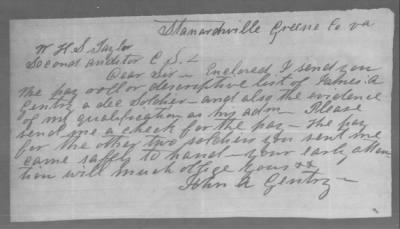 Stanardsville Greene Co va
W H S Taylor
Second auditor C S
Dear Sir - Enclosed I send you
the pay roll or descriptive list of James A
Gentry a dec Soldier - and also the evidence
of my qualification as his adm - Please
send me a check for the pay - The pay
for the other two soldiers you sent me
came safely to hand - your early atten
tion will much oblige yours &c
John A Gentry -